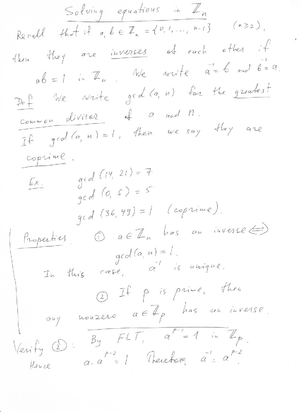 Solving equations in ℤₙ
Recall that if a, b ∈ ℤₙ = {0, 1, ..., n-1} (n≥2),
then they are inverses of each other if
ab = 1 in ℤₙ. We write a⁻¹ = b and b⁻¹ = a
Def We write gcd(a, n) for the greatest
common divisor of a and n.
If gcd(a, n) = 1, then we say they are
coprime.
Ex. gcd(14, 21) = 7
gcd(0, 5) = 5
gcd(36, 49) = 1 (coprime).
Properties ① a ∈ ℤₙ has an inverse ⟺
gcd(a, n) = 1.
In this case, a⁻¹ is unique.
② If p is prime, then
any nonzero a ∈ ℤₚ has an inverse.
Verify ②: By FLT, aᵖ⁻¹ = 1 in ℤₚ.
Hence a·aᵖ⁻² = 1 Therefore, a⁻¹ = aᵖ⁻².